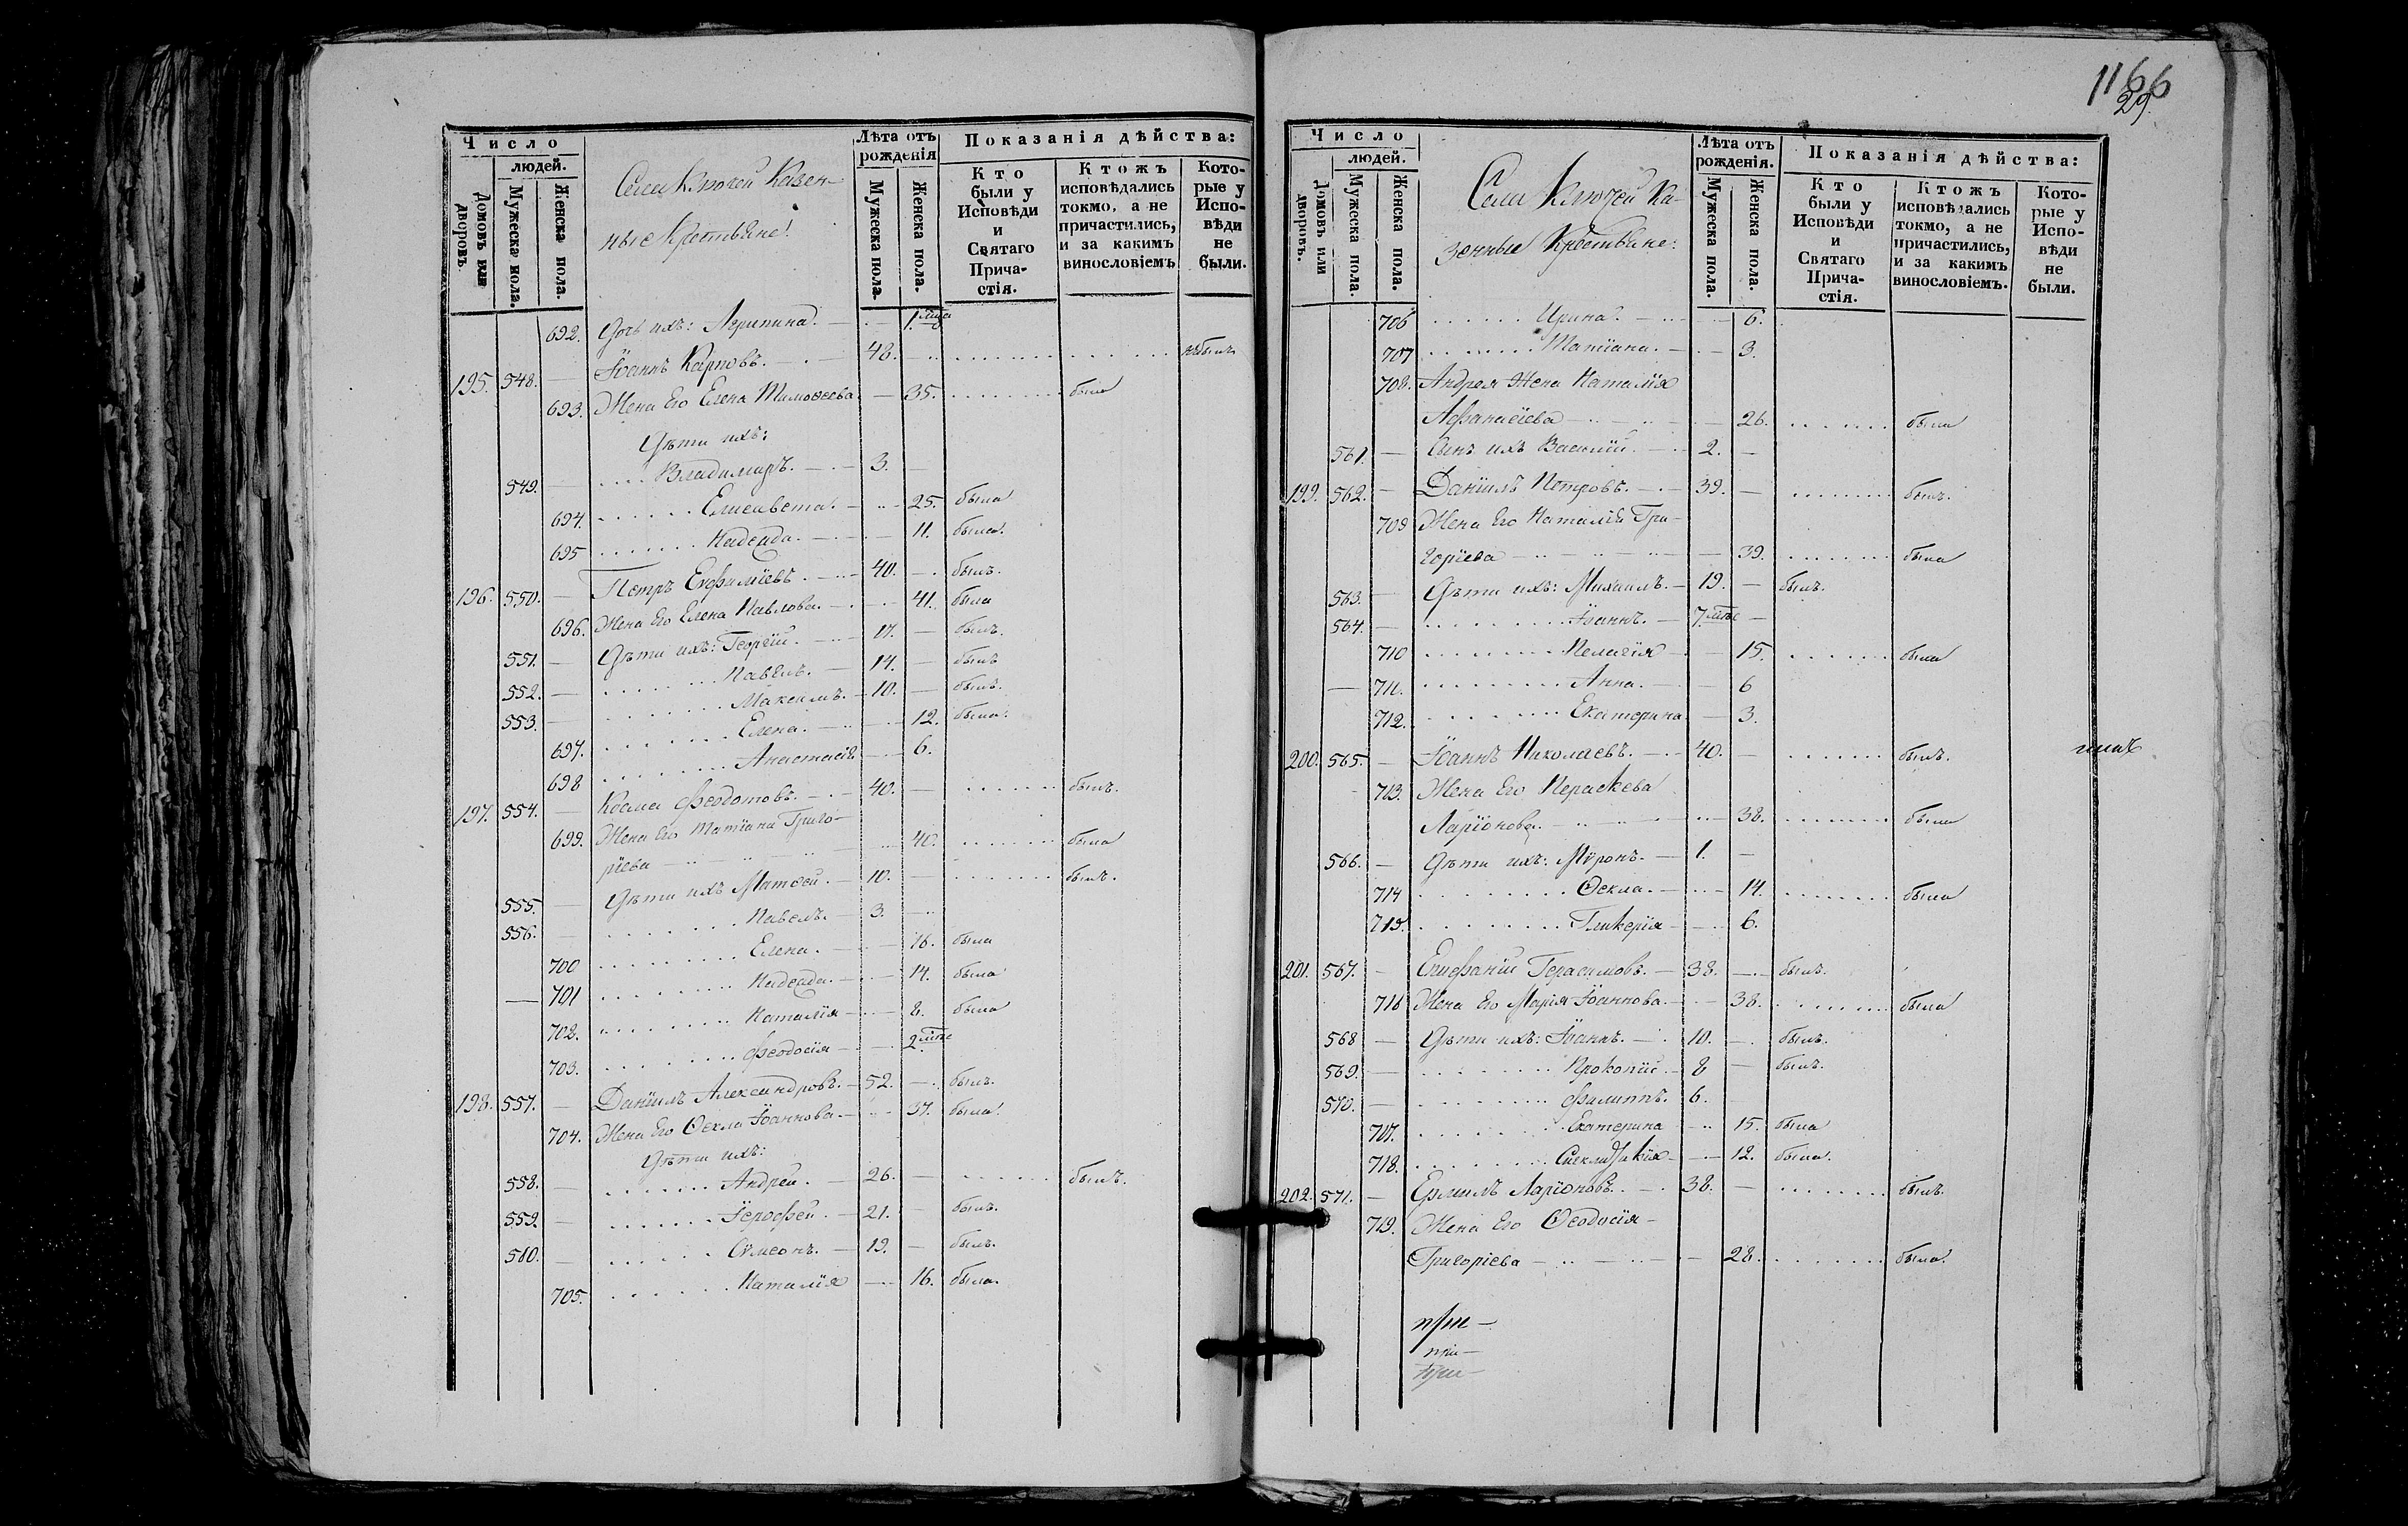 Число
людей.
Домовъ или дворовъ.
Мужеска пола.
Женска пола.
Села Ключей Казен-
ные Крестьяне:
Лѣта отъ рожденія
Мужеска пола.
Женска пола.
Показанія дѣйства:
Кто были у Исповѣди и Святаго Причастія.
Ктожъ исповѣдались токмо, а не причастились, и за какимъ винословіемъ
Которые у Исповѣди не были.
692. Дочь ихъ: Агрипина. 1.
195. 548. Іоаннъ Карповъ. 48. небылъ
693. Жена Его Елена Тимоѳеева. 35. была
Дѣти ихъ:
549. Владимиръ. 3.
694. Елисавета. 25. была
695 Надежда. 11. была.
196. 550. Петръ Евфимїевъ. 40. былъ.
696. Жена Его Елена Павлова. 41. была
551. Дѣти ихъ: Георгїй. 17. былъ.
552. Павелъ. 14. былъ
553. Максимъ. 10. былъ.
697. Елена. 12. была.
698 Анастасїя 6.
197. 554. Косма Феодотовъ. 40. былъ.
699. Жена Его Татїана Григо-
рїева 40. была
555. Дѣти ихъ Матѳей. 10. былъ.
556. Павелъ. 3.
700 Елена. 16. была
701 Надежда. 14. была
702. Наталїя 8. была
703. Феодосїя 2.
198. 557. Данїилъ Александровъ. 52. былъ.
704. Жена Его Ѳекла Іоаннова. 37. была.
Дѣти ихъ:
558. Андрей. 26. былъ.
559. Іерофей. 21. былъ.
560. Сѵмеонъ. 19. былъ.
705. Наталїя 16. была.
1166
29.
Число
людей.
Домовъ или дворовъ.
Мужеска пола.
Женска пола.
Села Ключей Ка-
зенные Крестьяне:
Лѣта отъ рожденія.
Мужеска пола.
Женска пола.
Показанія дѣйства:
Кто были у Исповѣди и Святаго Причастія.
Ктожъ исповѣдались токмо, а не причастились, и за какимъ винословіемъ.
Которые у Исповѣди не были.
706 Ирина. 6.
707 Татїана. 3.
708. Андрея Жена Наталїя
Афанасїева 26. была
561. Сынъ ихъ Василїй. 2.
199. 562. Данїилъ Петровъ. 39. былъ.
709 Жена Его Наталїя Гри-
горїева 39. была
563. Дѣти ихъ: Михаилъ. 19. былъ.
564. Іоаннъ. 7
710 Пелагїя 15. была
711. Анна. 6
712. Екатерина 3.
200. 565. Іоаннъ Николаевъ. 40. былъ.
713. Жена Его Параскева
Ларїонова. 38. была
566. Дѣти ихъ: Мѵронъ. 1.
714 Ѳекла. 14. была
715. Гликерїя 6.
201. 567. Епифанїй Герасимовъ. 38. былъ.
716 Жена Его Марїя Іоаннова. 38. была
568 Дѣти ихъ: Іоаннъ. 10. былъ.
569. Прокопїй. 8 былъ.
570. Филиппъ. 6.
717. Екатерина 15. была
718. 12. была.
202. 571. Ермилъ Ларїоновъ. 38. былъ.
719. Жена Его Ѳеодосїя
Григорїева 28. была.
при
при
при